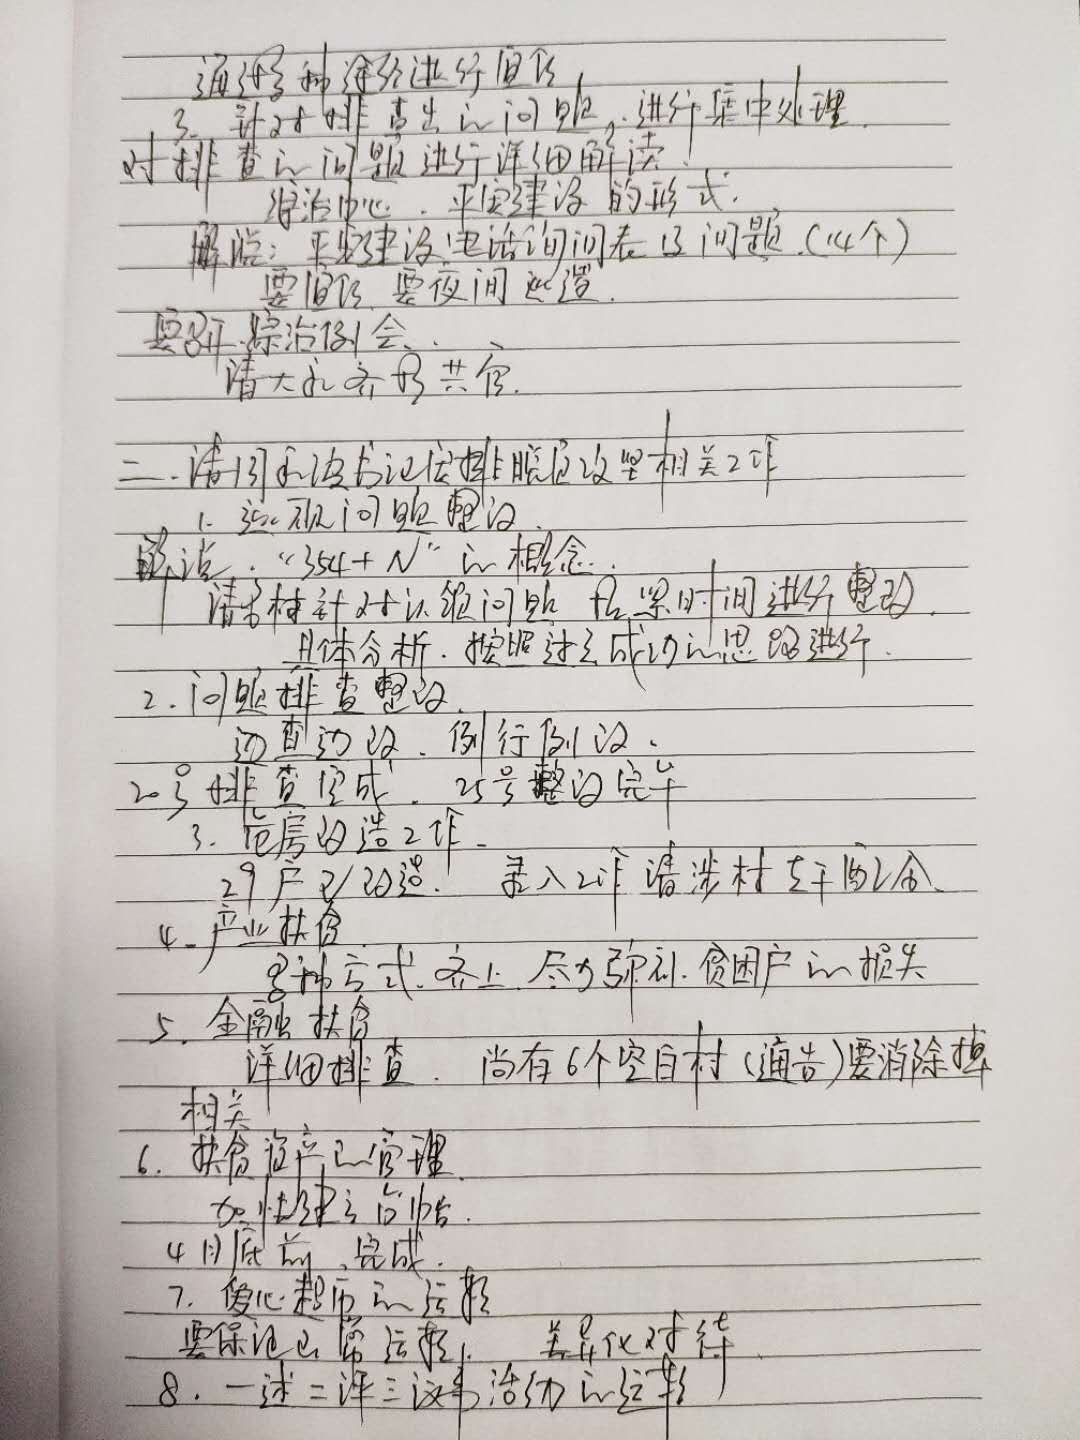 通过多种途径进行宣传
3. 针对排查出的问题，进行集中处理.
对排查的问题进行详细解读
综治中心、平安建设的形式.
解读：平安建设电话询问表 13问题.(14个)
要宣传 要夜间巡逻.
要召开综治例会.
请大家齐抓共管.
二. 请 书记安排脱贫攻坚相关工作
1. 巡视问题整改.
解读. "354+N"的概念.
请各村针对认领问题 抓紧时间进行整改.
具体分析. 按照过去成功的思路进行.
2. 问题排查整改.
边查边改、例行例改.
20号排查完成. 25号整改完毕
3. 危房改造工作.
29户已改造. 录入工作 请涉村支干配合.
4. 产业扶贫.
多种方式.齐上.尽力弥补.贫困户的损失
5. 金融扶贫
详细排查. 尚有6个空白村(通告)要消除掉
相关
6. 扶贫资产的管理
加快建立台帐.
4月底前、完成.
7. 爱心超市的运转
要保证正常运转. 差异化对待
8. 一述二评三议 活动的运转